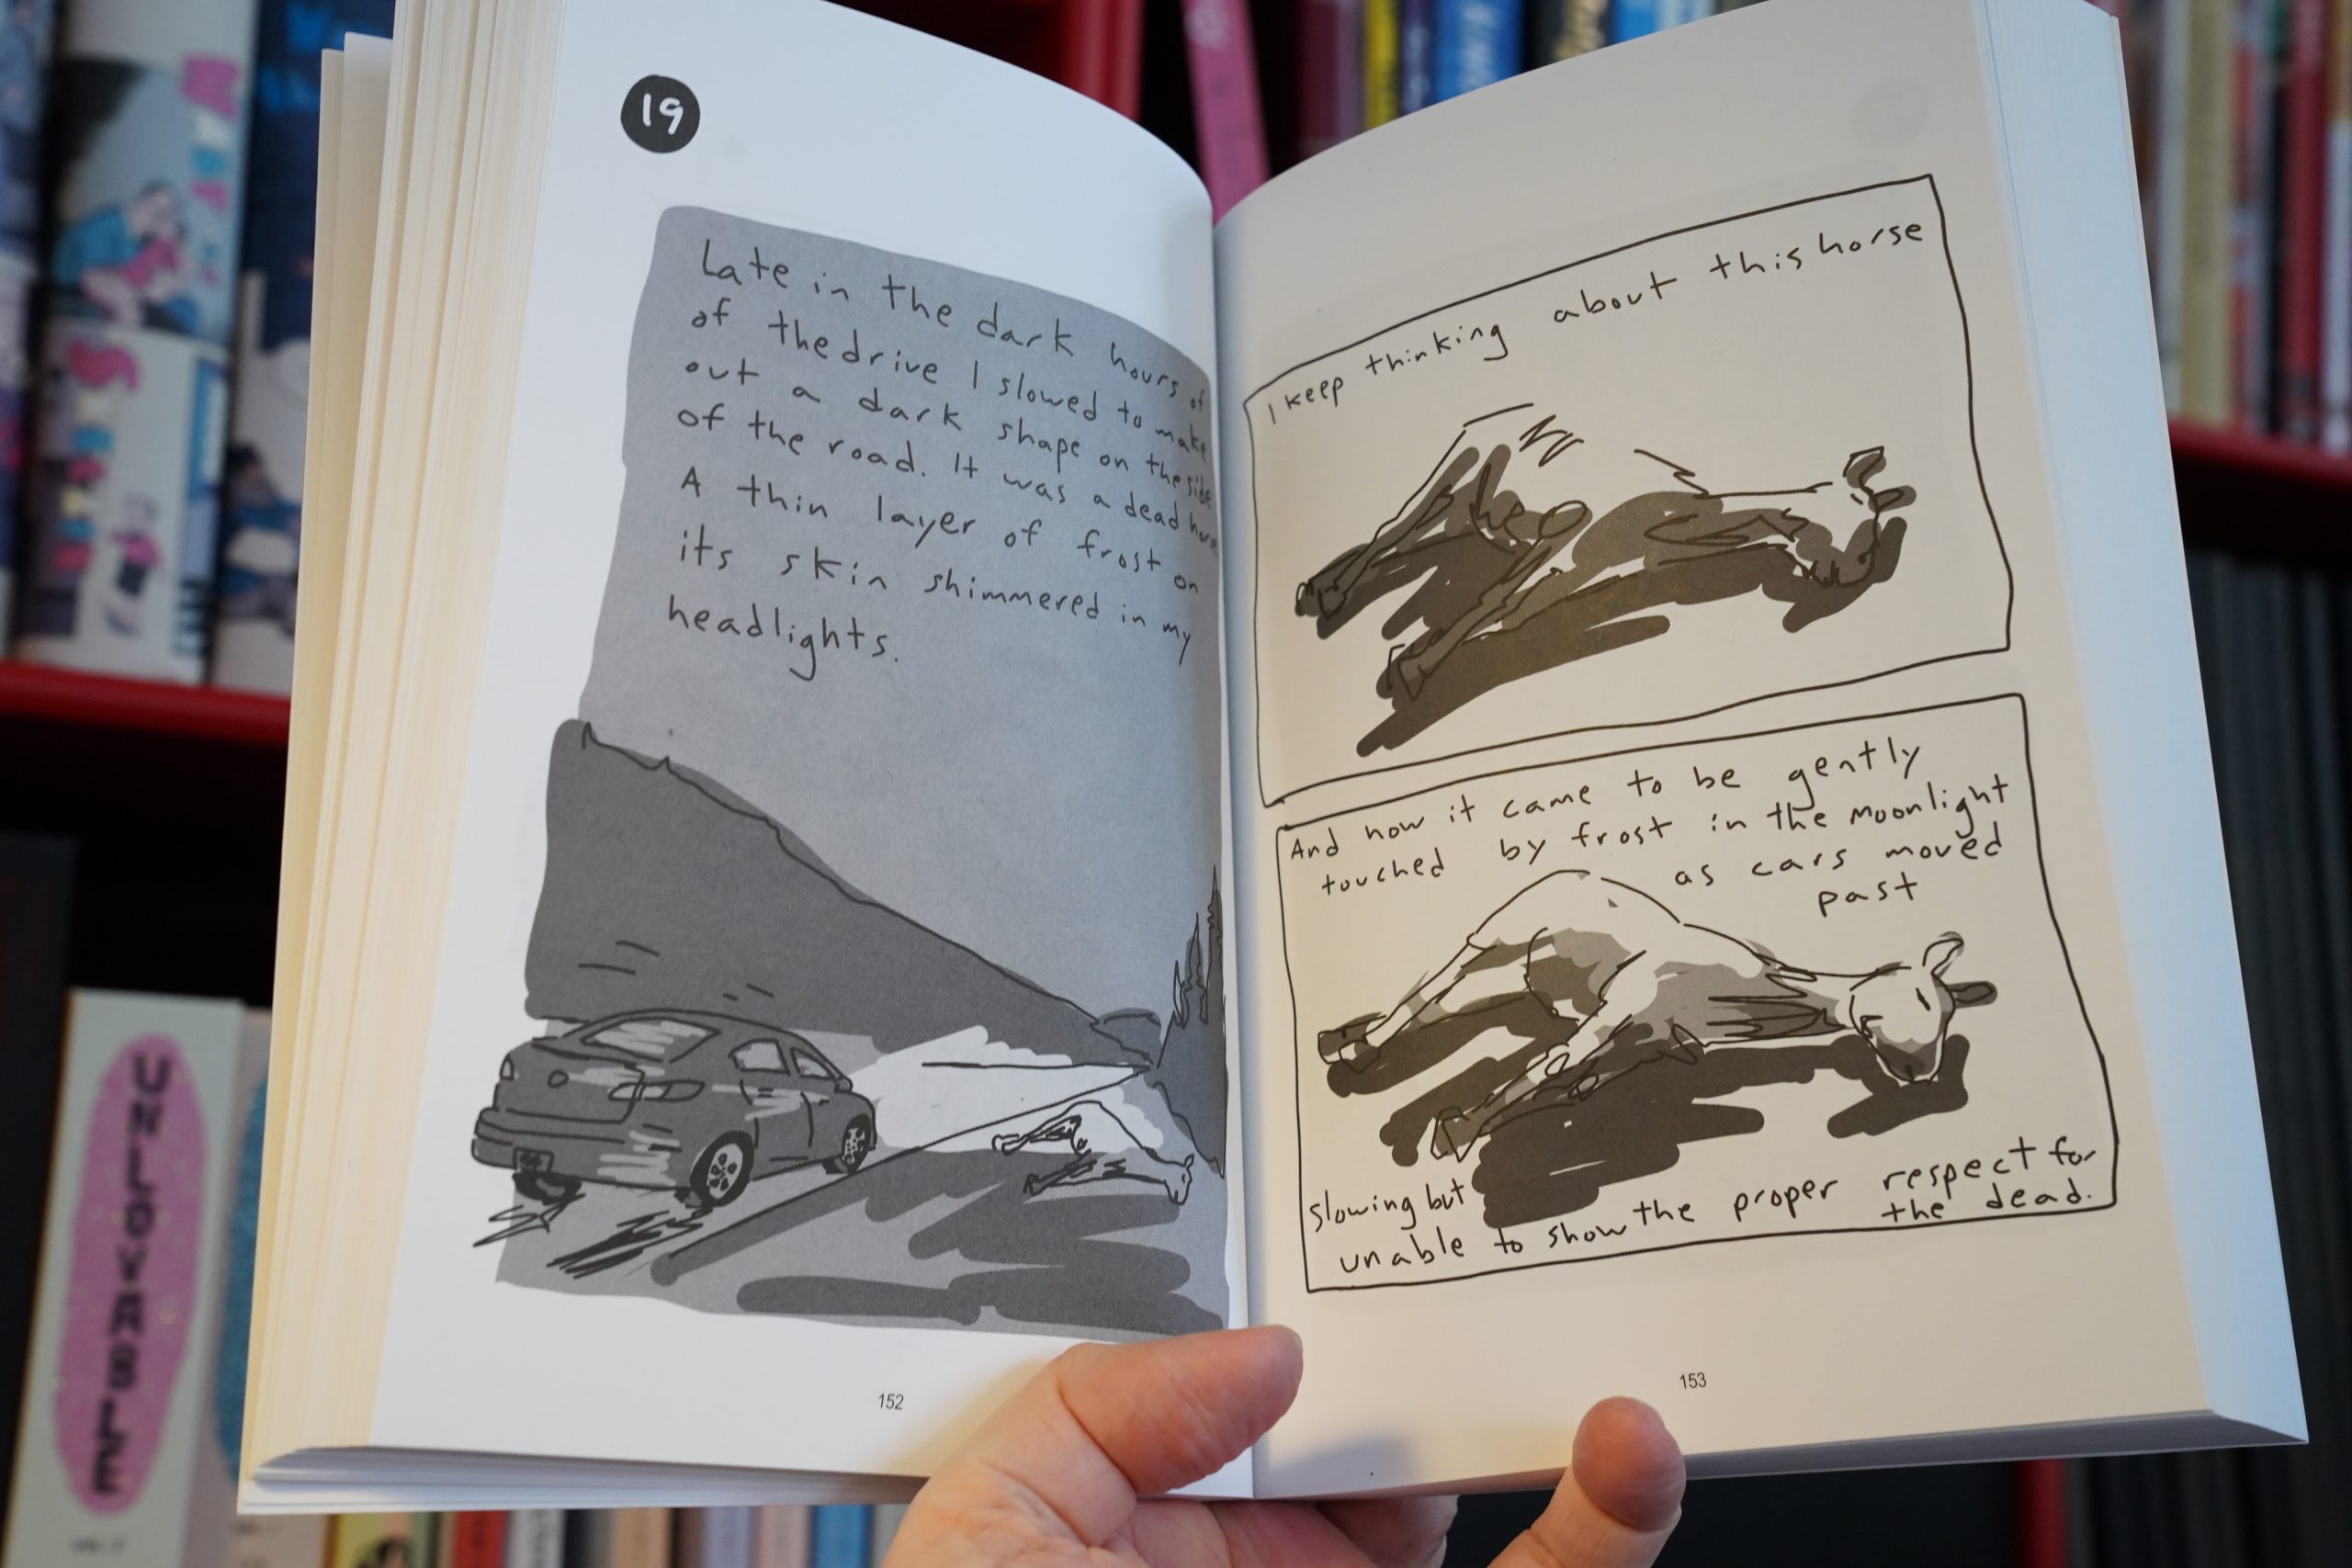 19
Late in the dark hours of
of the drive I slowed to make
out a dark shape on the side
of the road. It was a dead horse
A thin layer of frost on
its skin shimmered in my
headlights.
152
I keep thinking about this horse
And how it came to be gently
touched by frost in the moonlight
as cars moved
past
slowing but
unable to show the proper respect for
the dead.
153
UNLOVABLE